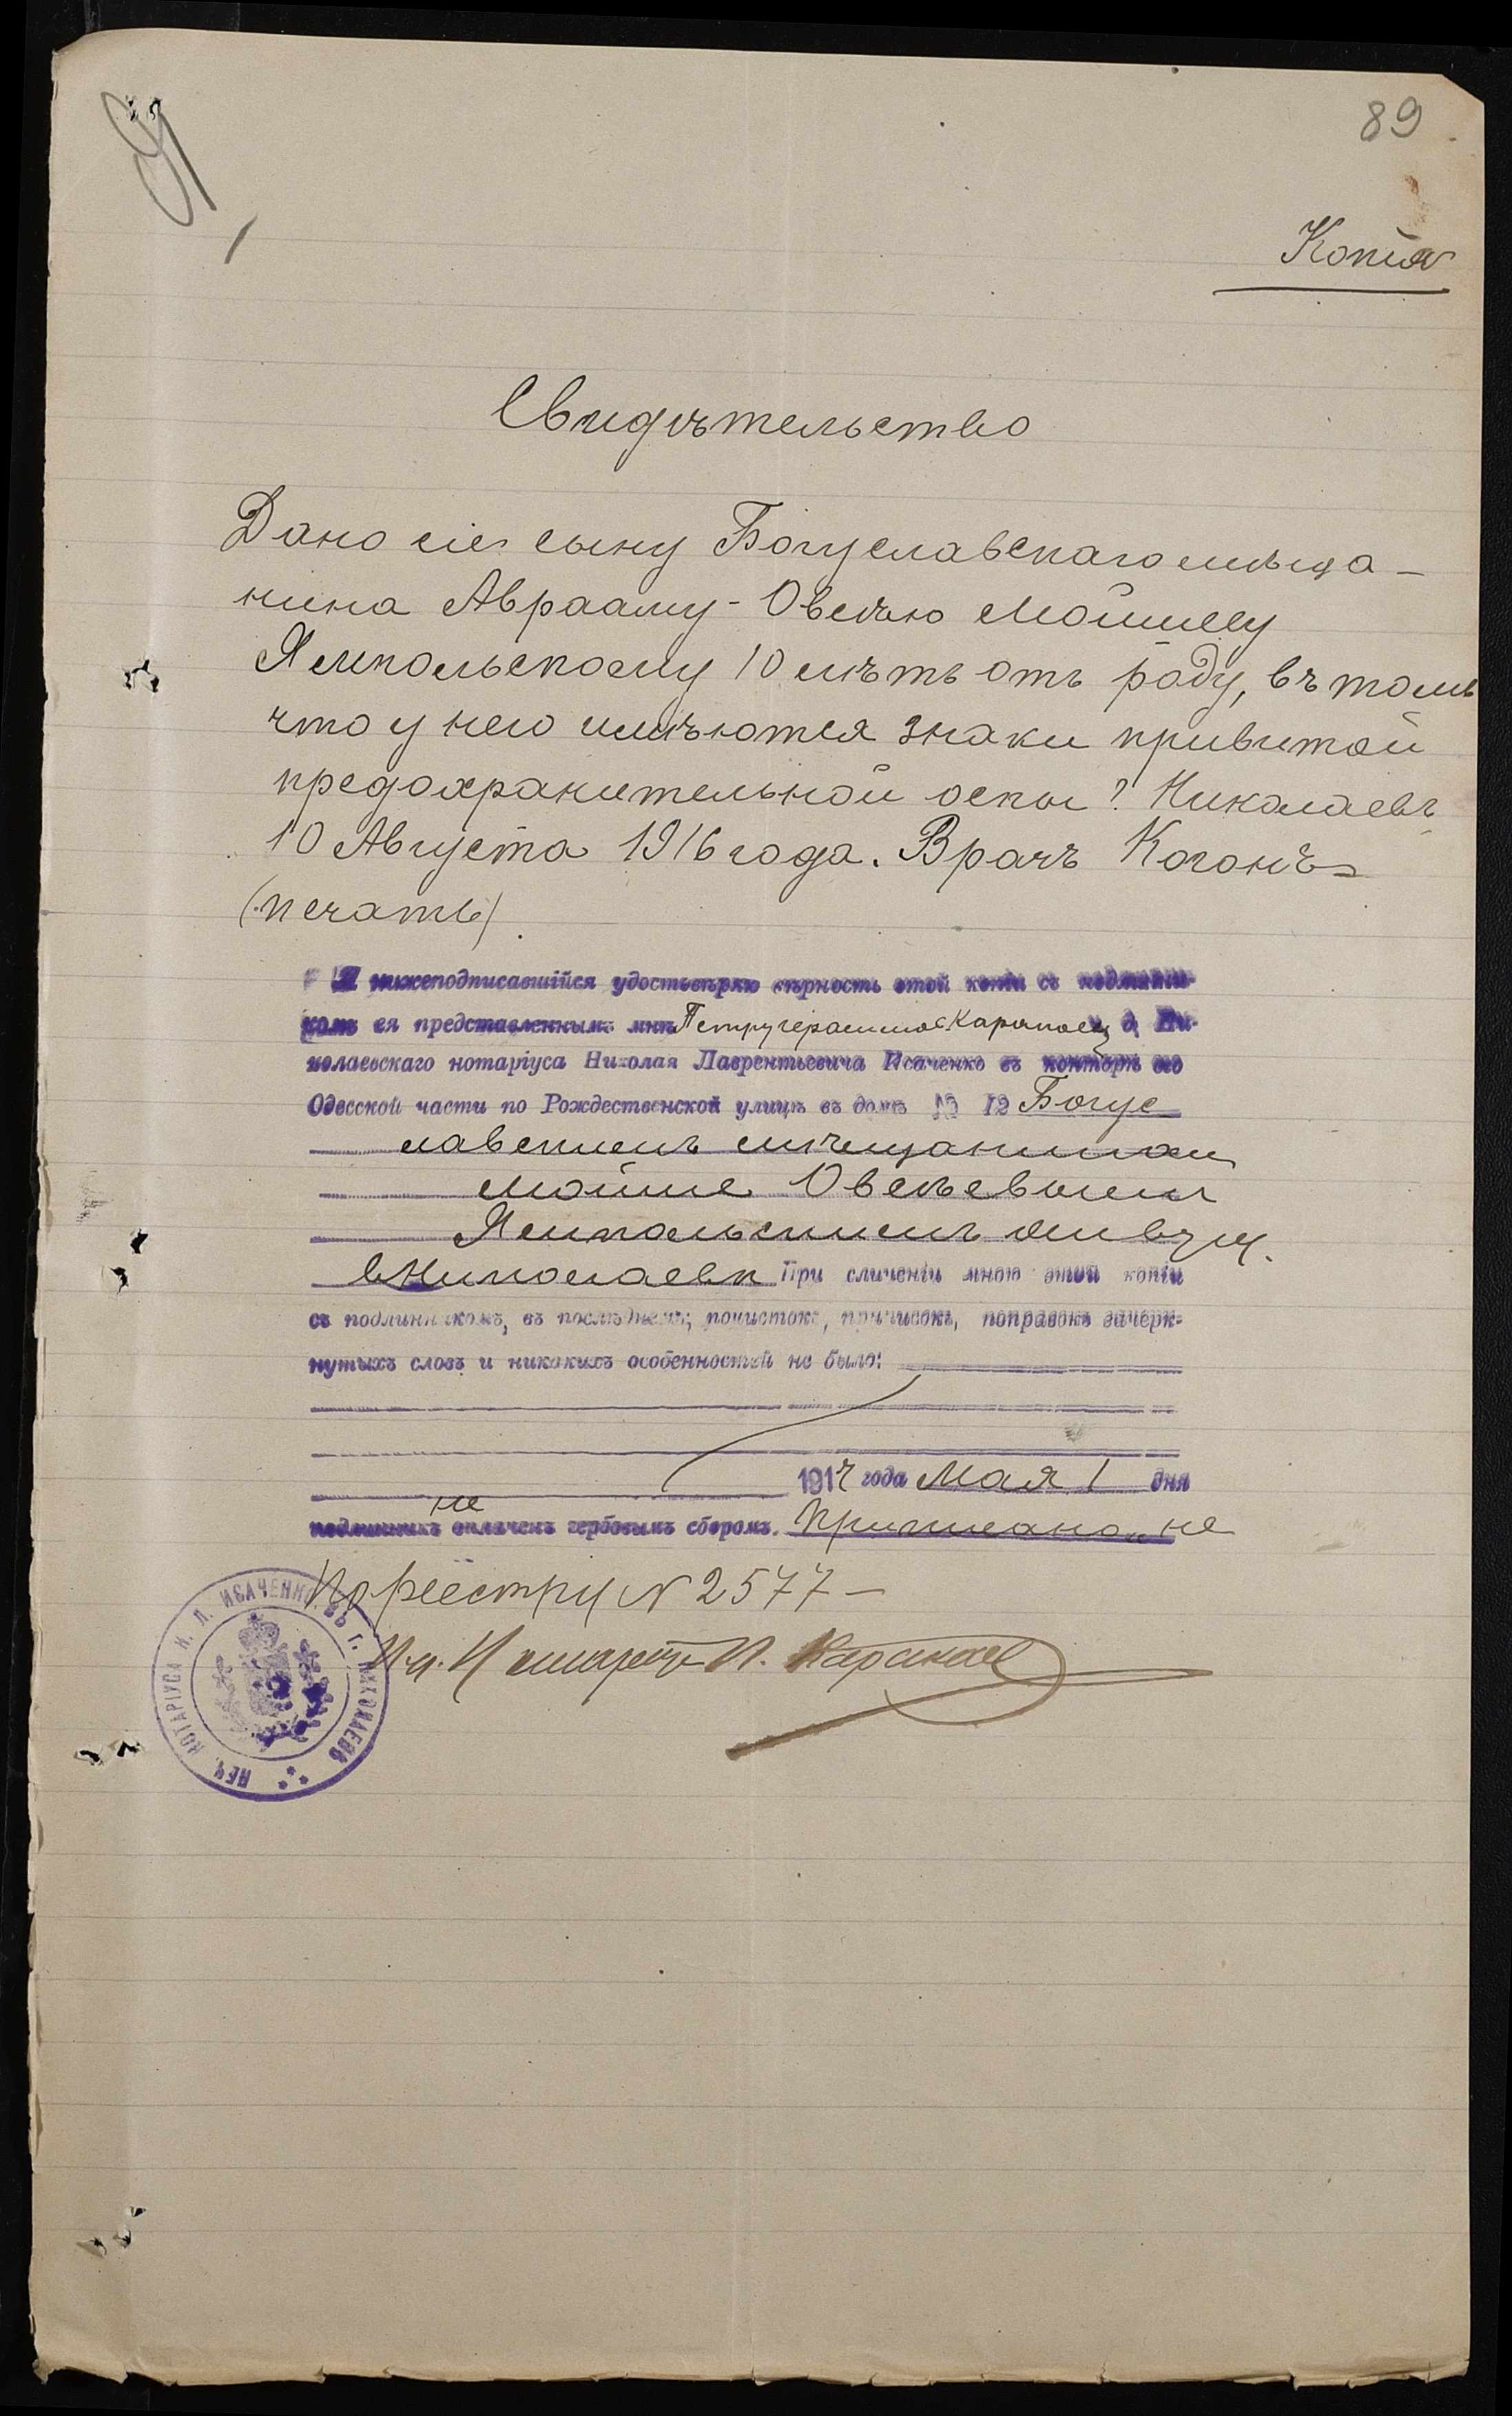 89
Копія
Свидѣтельство
Дано сіе сыну Богуславскаго мѣща-
нина Аврааму-Овсѣю Мойшеву
Ямпольскому 10 лѣтъ отъ роду, въ томъ
что у него имѣются знаки привитой
предохранительной оспы. Николаевъ
10 Августа 1916 года. Врачъ Когонъ
(печать).
Я нижеподписавшійся удостовѣряю вѣрность этой копіи съ подлинни-
комъ ея представленнымъ мнѣ Петру Герасимов. Карапаеву и. д. Ни-
колаевскаго нотаріуса Николая Лаврентьевича Исаченко въ конторѣ его
Одесской части по Рождественской улицѣ въ домѣ № 12 Богус
лавскимъ мѣщаниномъ
Мойше Овсѣевымъ
Ямпольскимъ живущ.
въ Николаевѣ При сличеніи мною этой копіи
съ подлинникомъ, въ послѣднемъ; почистокъ, приписокъ, поправокъ зачерк-
нутыхъ словъ и никакихъ особенностей не было:
1917 года Мая 1 дня
не
подлинникъ оплаченъ гербовымъ сборомъ. Приписано „не
По реестру N 2577 —
И. д. Нотаріуса П. Карапаев
ПЕЧ. НОТАРІУСА Н. Л. ИСАЧЕНКО ВЪ Г. НИКОЛАЕВѢ